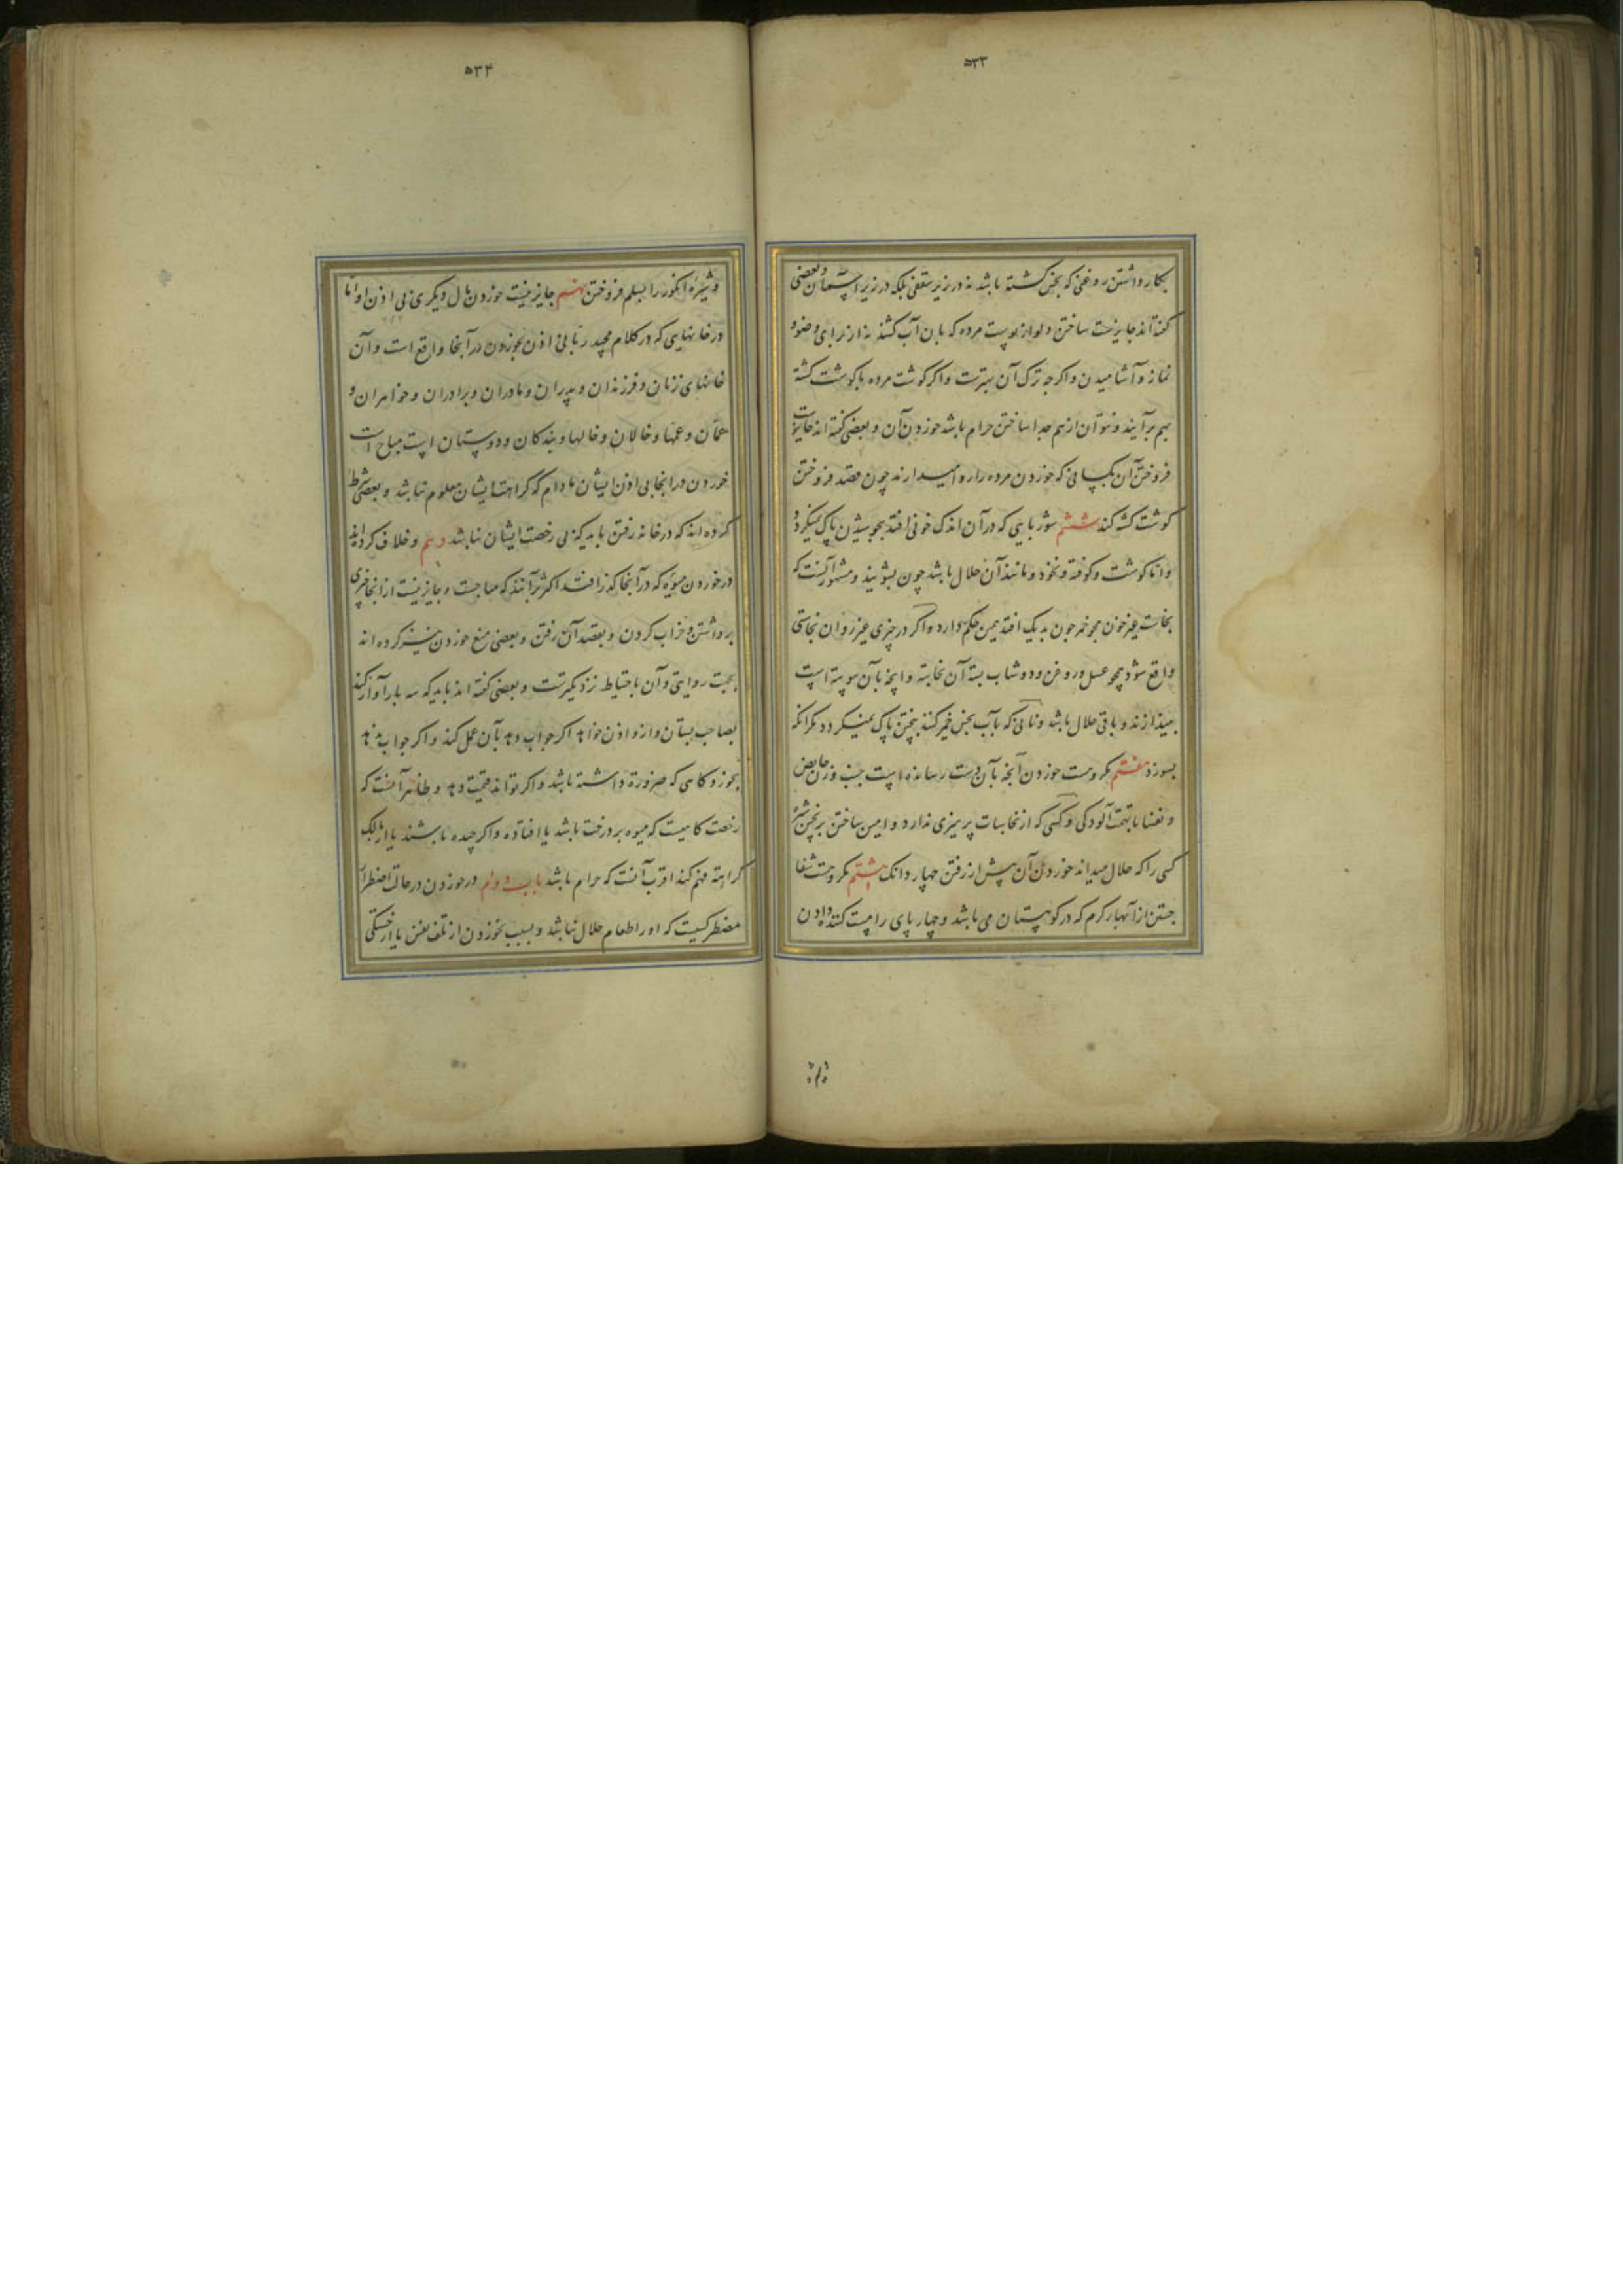 ۵۳۳
بکار داشتن روغنی که نجس گشته باشد نه در زیر سقفی بلکه در زیر آسمان و بعضی
گفته‌اند جایزست ساختن دلو از پوست مرده که بان آب کشند نه از برای وضو و
نماز و آشامیدن و اگر چه ترک آن بهترست و اگر گوشت مرده با گوشت کشته
بهم برآیند و نتوان از هم جدا ساختن حرام باشد خوردن آن و بعضی گفته‌اند جایزست
فروختن آن بکسانی که خوردن مرده را روا میدارند چون قصد فروختن
گوشت کشته کند ششم شوربایی که در آن اندک خونی افتد بجوشیدن پاک نمیگردد
و اما گوشت و کوفته و نخود و مانند آن حلال باشد چون بشویند و مشهور آنست که
نجاست غیر خون همچو خمر چون بدیک افتد همین حکم دارد و اگر در چیزی غیر روان نجاستی
واقع شود همچو عسل و روغن و دوشاب بسته آن نجاسته و آنچه بآن پیوسته است
میندازند و باقی حلال باشد و نانی که بآب نجس خمیر کنند بپختن پاک نمیگردد مگر آنکه
بسوزد هفتم مکروهست خوردن آنچه بآن دست رسانیده باشد جنب و زن حایض
و نفسا با تهمت آلودکی و کسی که از نجاسات پرهیزی ندارد و امین ساختن بر پختن شیره
کسی را که حلال میداند خوردن آن پیش از رفتن چهار دانک هشتم مکروهست شفا
جستن از آبهای گرم که در کوهستان می باشد و چهارپای را مست کننده دادن
و شیره
۵۳۴
و شیره انگور را بسلم فروختن نهم جایز نیست خوردن مال دیگری بی اذن او اما
در خانهایی که در کلام مجید ربانی اذن بخوردن در آنجا واقع است و آن
خانهای زنان و فرزندان و پدران و مادران و برادران و خواهران و
عمان و عمها و خالان و خالها و بندگان و دوستان است مباح است
خوردن در انجا بی اذن ایشان مادام که کراهت ایشان معلوم نباشد و بعضی شرط
کرده‌اند که در خانه رفتن باید که بی رخصت ایشان نباشد دهم و خلاف کرده‌اند
در خوردن میوه که در آنجا گذر افتد اکثر برآنند که مباحست و جایز نیست از انجا چیزی
برداشتن و خراب کردن و بقصد آن رفتن و بعضی منع خوردن نیز کرده‌اند
بجهت روایتی و آن باحتیاط نزدیکترست و بعضی گفته‌اند باید که سه بار آواز کند
بصاحب بستان و ازو اذن خواهد اگر جواب دهد بآن عمل کند و اگر جواب ندهد
بخورد گاهی که ضرورة داشته باشد و اگر تواند قیمت دهد و ظاهر آنست که
رخصت گاهیست که میوه بر درخت باشد یا افتاده و اگر چیده باشند یا از مالک
کراهة فهم کند اقرب آنست که حرام باشد باب دوم در خوردن در حالت اضطرار
مضطر کسیست که او را طعام حلال نباشد و بسبب نخوردن از تلف نفس یا از خستگی